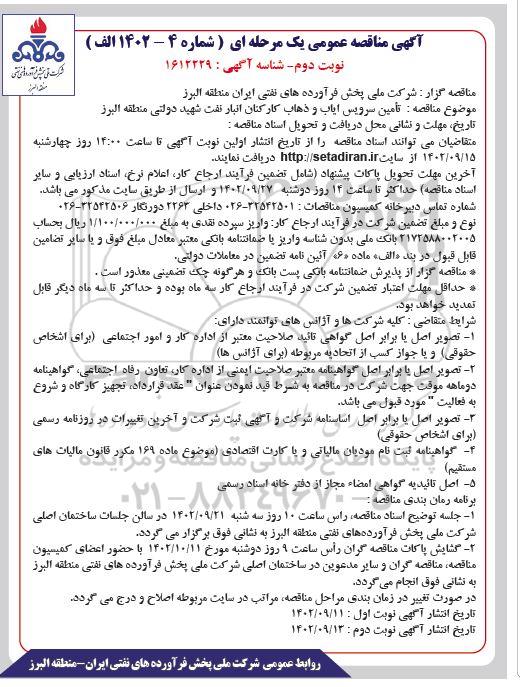 آگهی مناقصه عمومی یک مرحله ای ( شماره ۴ – ۱۴۰۲ الف )
نوبت دوم- شناسه آگهی : ۱۶۱۲۲۲۹
شرکت ملی پخش فرآورده‌های نفتی
منطقه البرز
مناقصه گزار : شرکت ملی پخش فرآورده های نفتی ایران منطقه البرز
موضوع مناقصه : تأمین سرویس ایاب و ذهاب کارکنان انبار نفت شهید دولتی منطقه البرز
تاریخ، مهلت و نشانی محل دریافت و تحویل اسناد مناقصه :
متقاضیان می توانند اسناد مناقصه را از تاریخ انتشار اولین نوبت آگهی تا ساعت ۱۴:۰۰ روز چهارشنبه
۱۴۰۲/۰۹/۱۵ از سایت http://setadiran.ir دریافت نمایند.
آخرین مهلت تحویل پاکات پیشنهاد (شامل تضمین فرآیند ارجاع کار، اعلام نرخ، اسناد ارزیابی و سایر
اسناد مناقصه) حداکثر تا ساعت ۱۴ روز دوشنبه ۱۴۰۲/۰۹/۲۷ و ارسال از طریق سایت مذکور می باشد.
شماره تماس دبیرخانه کمیسیون مناقصات : ۳۲۵۴۲۵۰۱-۰۲۶ داخلی ۲۲۶۳ دورنگار ۳۲۵۴۲۵۰۶-۰۲۶
نوع و مبلغ تضمین شرکت در فرآیند ارجاع کار: واریز سپرده نقدی به مبلغ ۱/۱۰۰/۰۰۰/۰۰۰ ریال بحساب
۲۱۷۲۵۸۸۰۰۲۰۰۵ بانک ملی بدون شناسه واریز یا ضمانتنامه بانکی معتبر معادل مبلغ فوق و یا سایر تضامین
قابل قبول در بند «الف» ماده «۶» آئین نامه تضمین در معاملات دولتی.
* مناقصه گزار از پذیرش ضمانتنامه بانکی پست بانک و هرگونه چک تضمینی معذور است .
* حداقل مهلت اعتبار تضمین شرکت در فرآیند ارجاع کار سه ماه بوده و حداکثر تا سه ماه دیگر قابل
تمدید خواهد بود.
شرایط متقاضی : کلیه شرکت ها و آژانس های توانمند دارای:
۱- تصویر اصل یا برابر اصل گواهی تائید صلاحیت معتبر از اداره کار و امور اجتماعی (برای اشخاص
حقوقی) و یا جواز کسب از اتحادیه مربوطه (برای آژانس ها)
۲- تصویر اصل یا برابر اصل گواهینامه معتبر صلاحیت ایمنی از اداره کار، تعاون رفاه اجتماعی، گواهینامه
دوماهه موقت جهت شرکت در مناقصه به شرط قید نمودن عنوان " عقد قرارداد، تجهیز کارگاه و شروع
به فعالیت " مورد قبول می باشد.
۳- تصویر اصل یا برابر اصل اساسنامه شرکت و آگهی ثبت شرکت و آخرین تغییرات در روزنامه رسمی
(برای اشخاص حقوقی)
۴- گواهینامه ثبت نام مودیان مالیاتی و یا کارت اقتصادی (موضوع ماده ۱۶۹ مکرر قانون مالیات های
مستقیم)
۵- اصل تائیدیه گواهی امضاء مجاز از دفتر خانه اسناد رسمی
برنامه زمان بندی مناقصه :
۱- جلسه توضیح اسناد مناقصه، راس ساعت ۱۰ روز سه شنبه ۱۴۰۲/۰۹/۲۱ در سالن جلسات ساختمان اصلی
شرکت ملی پخش فرآورده‌های نفتی منطقه البرز به نشانی فوق برگزار می گردد.
۲- گشایش پاکات مناقصه گران رأس ساعت ۹ روز دوشنبه مورخ ۱۴۰۲/۱۰/۱۱ با حضور اعضای کمیسیون
مناقصه، مناقصه گران و سایر مدعوین در ساختمان اصلی شرکت ملی پخش فرآورده های نفتی منطقه البرز
به نشانی فوق انجام می‌گردد.
در صورت تغییر در زمان بندی مراحل مناقصه، مراتب در سایت مربوطه اصلاح و درج می گردد.
تاریخ انتشار آگهی نوبت اول : ۱۴۰۲/۰۹/۱۱
تاریخ انتشار آگهی نوبت دوم : ۱۴۰۲/۰۹/۱۳
پایگاه اطلاع رسانی مناقصه و مزایده
۰۲۱-۸۸۳۴۹۶۷۰
روابط عمومی شرکت ملی پخش فرآورده های نفتی ایران-منطقه البرز